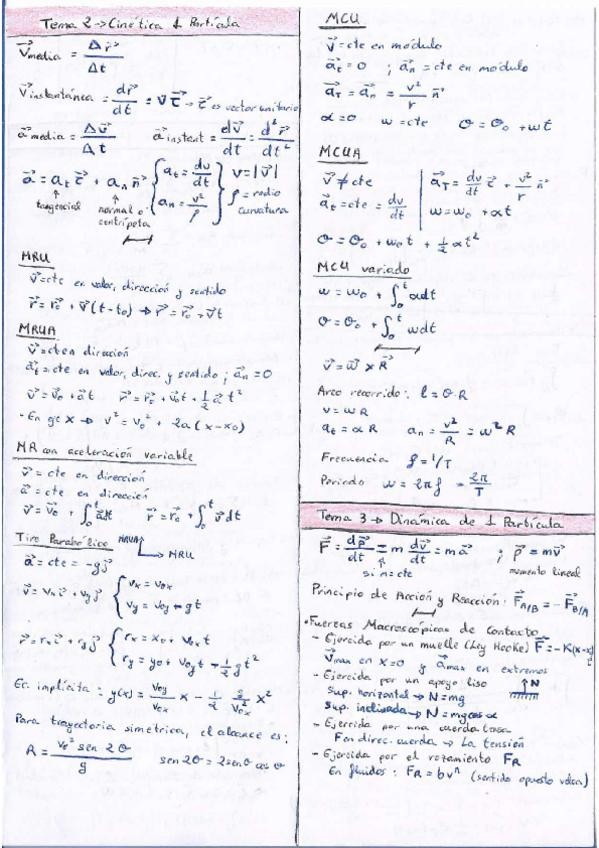 Tema 2 → Cinética 1 Partícula
V⃗media = Δr⃗ / Δt
V⃗instantánea = dr⃗/dt = v τ⃗ → τ⃗ es vector unitario
a⃗media = Δv⃗/Δt    a⃗instant = dv⃗/dt = d²r⃗/dt²
a⃗ = at τ⃗ + an n⃗ { at = dv/dt    v = |v⃗|
an = v²/ρ    ρ = radio curvatura
tangencial    normal o centrípeta
MRU
v⃗ = cte en valor, dirección y sentido
r⃗ = r⃗o + v⃗(t-to) → r⃗ = r⃗o + v⃗t
MRUA
v⃗ = cte en dirección
a⃗t = cte en valor, direc. y sentido ; a⃗n = 0
v⃗ = v⃗o + a⃗t    r⃗ = r⃗o + v⃗ot + 1/2 a⃗t²
- En eje X → v² = vo² + 2a(x-xo)
MR con aceleración variable
v⃗ = cte en dirección
a⃗ = cte en dirección
v⃗ = v⃗o + ∫₀ᵗ a⃗dt    r⃗ = r⃗o + ∫₀ᵗ v⃗dt
Tiro Parabólico    MRUA    MRU
a⃗ = cte = -gj⃗
v⃗ = vx i⃗ + vy j⃗ { vx = vox
vy = voy - gt
r⃗ = rx i⃗ + ry j⃗ { rx = xo + voxt
ry = yo + voyt - 1/2 gt²
Ec. implícita : y(x) = voy/vox x - 1/2 g/vox² x²
Para trayectoria simétrica, el alcance es:
R = vo² sen 2θ / g    sen 2θ = 2senθ cos θ
MCU
v⃗ = cte en módulo
a⃗t = 0 ; a⃗n = cte en módulo
a⃗T = a⃗n = v²/r n⃗
α = 0    ω = cte    θ = θo + ωt
MCUA
v⃗ ≠ cte
a⃗t = cte = dv/dt
a⃗T = dv/dt τ⃗ + v²/r n⃗
ω = ωo + αt
θ = θo + ωot + 1/2 αt²
MCU variado
ω = ωo + ∫₀ᵗ αdt
θ = θo + ∫₀ᵗ ωdt
v⃗ = ω⃗ x R⃗
Arco recorrido: l = θ·R
v = ωR
at = αR    an = v²/R = ω²R
Frecuencia f = 1/T
Periodo ω = 2πf = 2π/T
Tema 3 → Dinámica de 1 Partícula
F⃗ = dp⃗/dt = m dv⃗/dt = ma⃗ ; p⃗ = mv⃗
si m=cte    momento lineal
Principio de Acción y Reacción: F⃗A/B = -F⃗B/A
• Fuerzas Macroscópicas de Contacto
- Ejercida por un muelle (Ley Hooke) F⃗ = -K(x-x
v⃗max en x=0 y a⃗max en extremos
- Ejercida por un apoyo liso    ↑N
Sup. horizontal → N = mg
Sup. inclinada → N = mgcos α
- Ejercida por una cuerda tensa
F en direc. cuerda → La tensión
- Ejercida por el rozamiento FR
En fluidos: FR = bvⁿ (sentido opuesto veloc.)